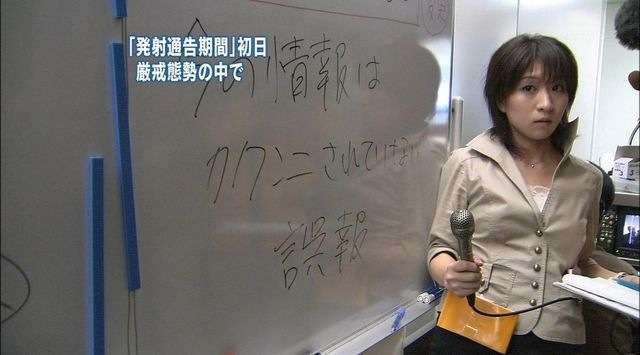 「発射通告期間」初日
厳戒態勢の中で
今の情報は
カクニンされていない
誤報